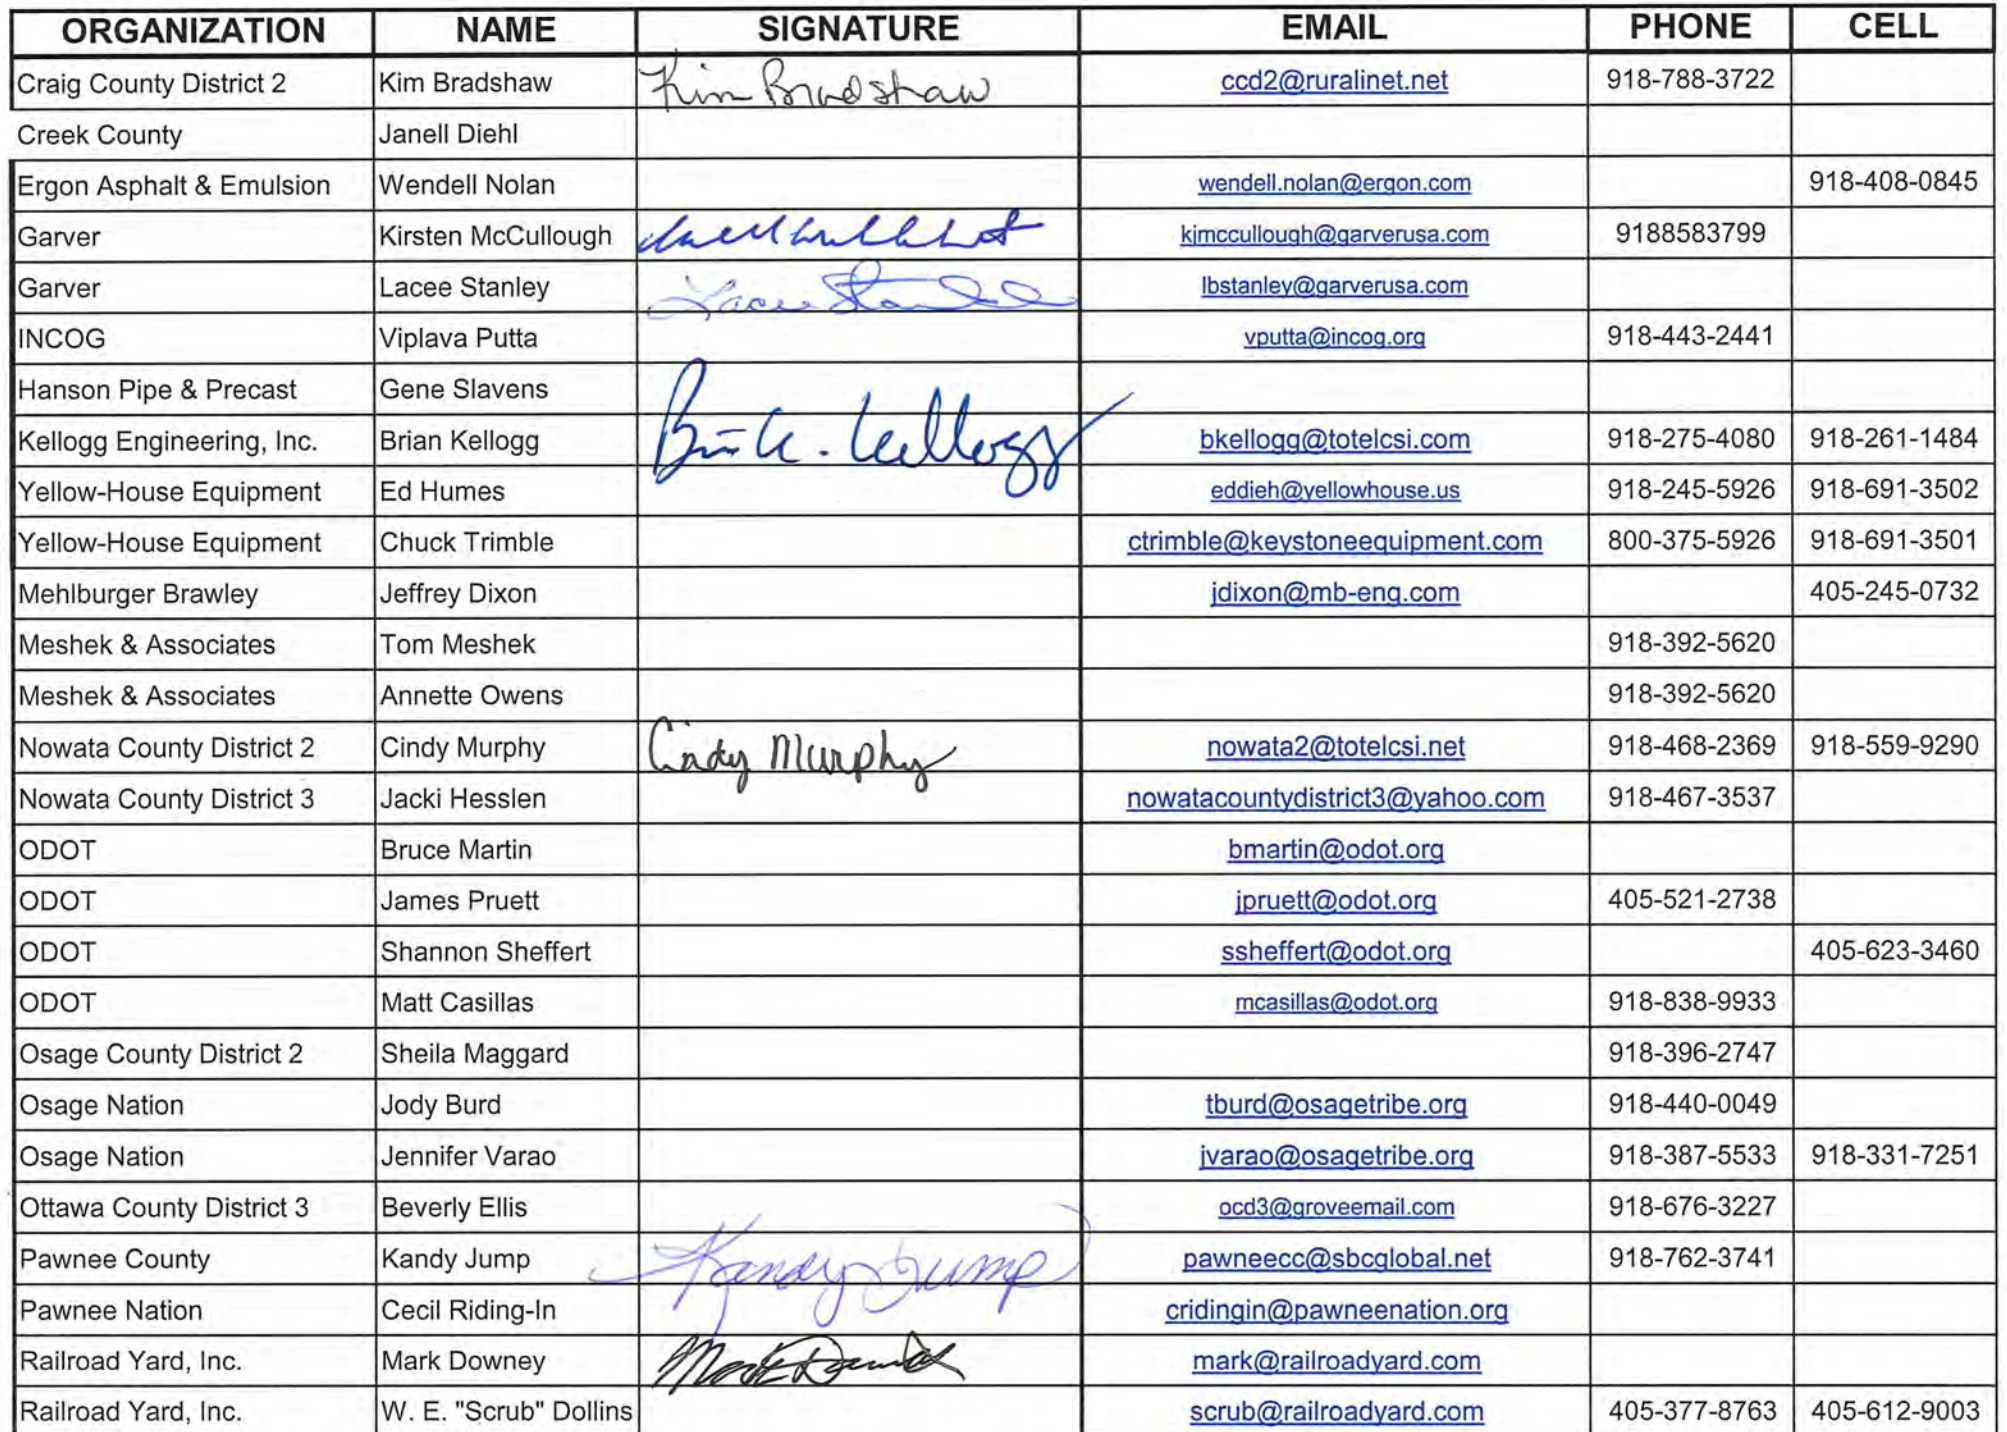 ORGANIZATION NAME SIGNATURE EMAIL PHONE CELL
Craig County District 2 Kim Bradshaw Kim Bradshaw ccd2@ruralinet.net 918-788-3722
Creek County Janell Diehl
Ergon Asphalt & Emulsion Wendell Nolan wendell.nolan@ergon.com 918-408-0845
Garver Kirsten McCullough kjmccullough@garverusa.com 9188583799
Garver Lacee Stanley Lacee Stanley lbstanley@garverusa.com
INCOG Viplava Putta vputta@incog.org 918-443-2441
Hanson Pipe & Precast Gene Slavens
Kellogg Engineering, Inc. Brian Kellogg Brian Kellogg bkellogg@totelcsi.com 918-275-4080 918-261-1484
Yellow-House Equipment Ed Humes eddieh@yellowhouse.us 918-245-5926 918-691-3502
Yellow-House Equipment Chuck Trimble ctrimble@keystoneequipment.com 800-375-5926 918-691-3501
Mehlburger Brawley Jeffrey Dixon jdixon@mb-eng.com 405-245-0732
Meshek & Associates Tom Meshek 918-392-5620
Meshek & Associates Annette Owens 918-392-5620
Nowata County District 2 Cindy Murphy Cindy Murphy nowata2@totelcsi.net 918-468-2369 918-559-9290
Nowata County District 3 Jacki Hesslen nowatacountydistrict3@yahoo.com 918-467-3537
ODOT Bruce Martin bmartin@odot.org
ODOT James Pruett jpruett@odot.org 405-521-2738
ODOT Shannon Sheffert ssheffert@odot.org 405-623-3460
ODOT Matt Casillas mcasillas@odot.org 918-838-9933
Osage County District 2 Sheila Maggard 918-396-2747
Osage Nation Jody Burd tburd@osagetribe.org 918-440-0049
Osage Nation Jennifer Varao jvarao@osagetribe.org 918-387-5533 918-331-7251
Ottawa County District 3 Beverly Ellis ocd3@groveemail.com 918-676-3227
Pawnee County Kandy Jump Kandy Jump pawneecc@sbcglobal.net 918-762-3741
Pawnee Nation Cecil Riding-In cridingin@pawneenation.org
Railroad Yard, Inc. Mark Downey mark@railroadyard.com
Railroad Yard, Inc. W. E. "Scrub" Dollins scrub@railroadyard.com 405-377-8763 405-612-9003